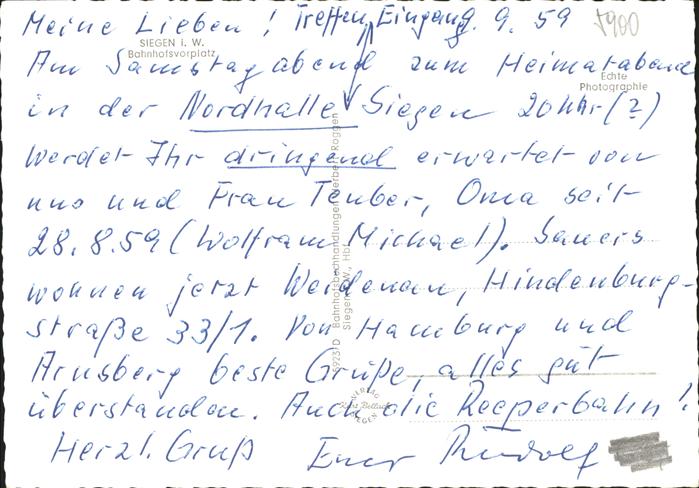 Meine Lieben! Treffen Eingang. 9. 59 5900
SIEGEN i. W.
Bahnhofsvorplatz
Am Samstag abend zum Heimatabend
Echte
Photographie
in der Nordhalle Siegen 20 Uhr (?)
werdet Ihr dringend erwartet von
uns und Frau Teuber, Oma seit
28.8.59 (Wolfram Michael). Sauers
wohnen jetzt Werdenau, Hindenburg-
straße 33/1. Von Hamburg und
Arnsberg beste Grüße, alles gut
überstanden. Auch die Reeperbahn!
Herzl. Gruß Euer Rudolf
Bahnhofsbuchhandlungen Herbert Röggen
Siegen i. W., Hbf.
VERLAG
SIEGEN